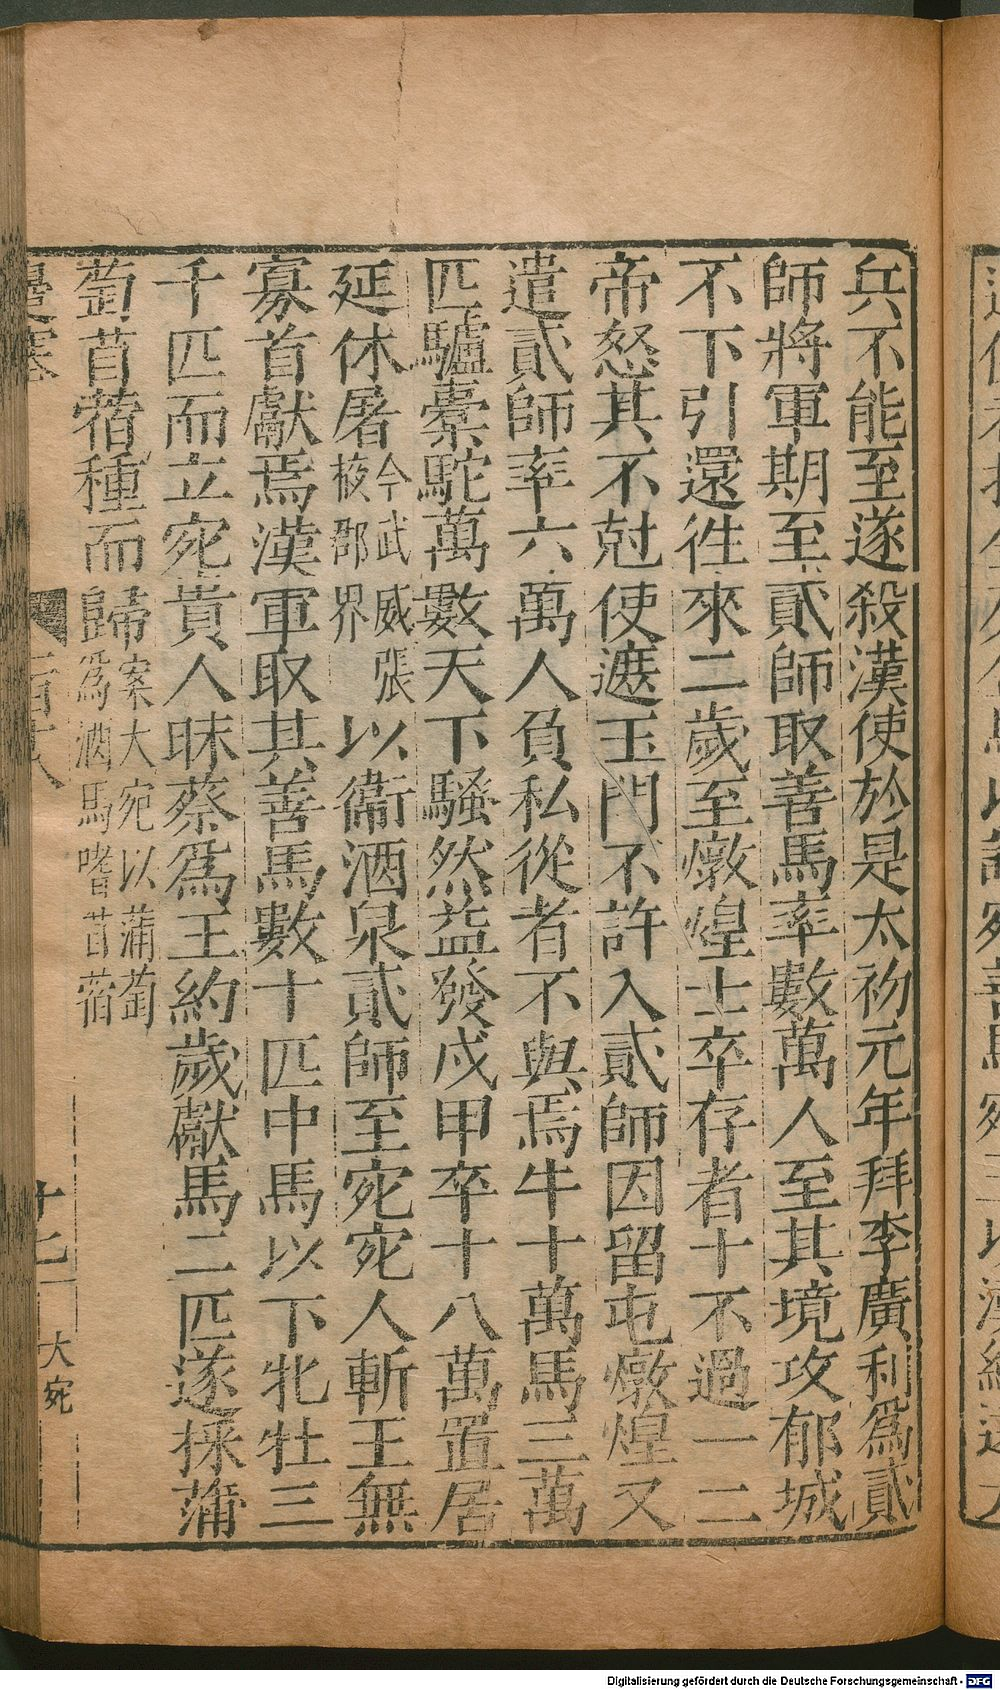 兵不能至遂殺漢使於是太初元年拜李廣利爲貳
師將軍期至貳師取善馬率數萬人至其境攻郁城
不下引還徃來二歲至燉煌士卒存者十不過一二
帝怒其不尅使遮玉門不許入貳師因留屯燉煌又
遣貳師率六萬人負私從者不與焉牛十萬馬三萬
匹驢橐駝萬數天下騷然益發戍甲卒十八萬置居
延休屠今武威張掖郡界以衞酒泉貳師至宛宛人斬王無
寡首獻焉漢軍取其善馬數十匹中馬以下牝牡三
千匹而立宛貴人昧蔡爲王約歲獻馬二匹遂採蒲
萄苜蓿種而歸案大宛以蒲萄爲酒馬嗜苜蓿
邊塞
十七 大宛
Digitalisierung gefördert durch die Deutsche Forschungsgemeinschaft - DFG